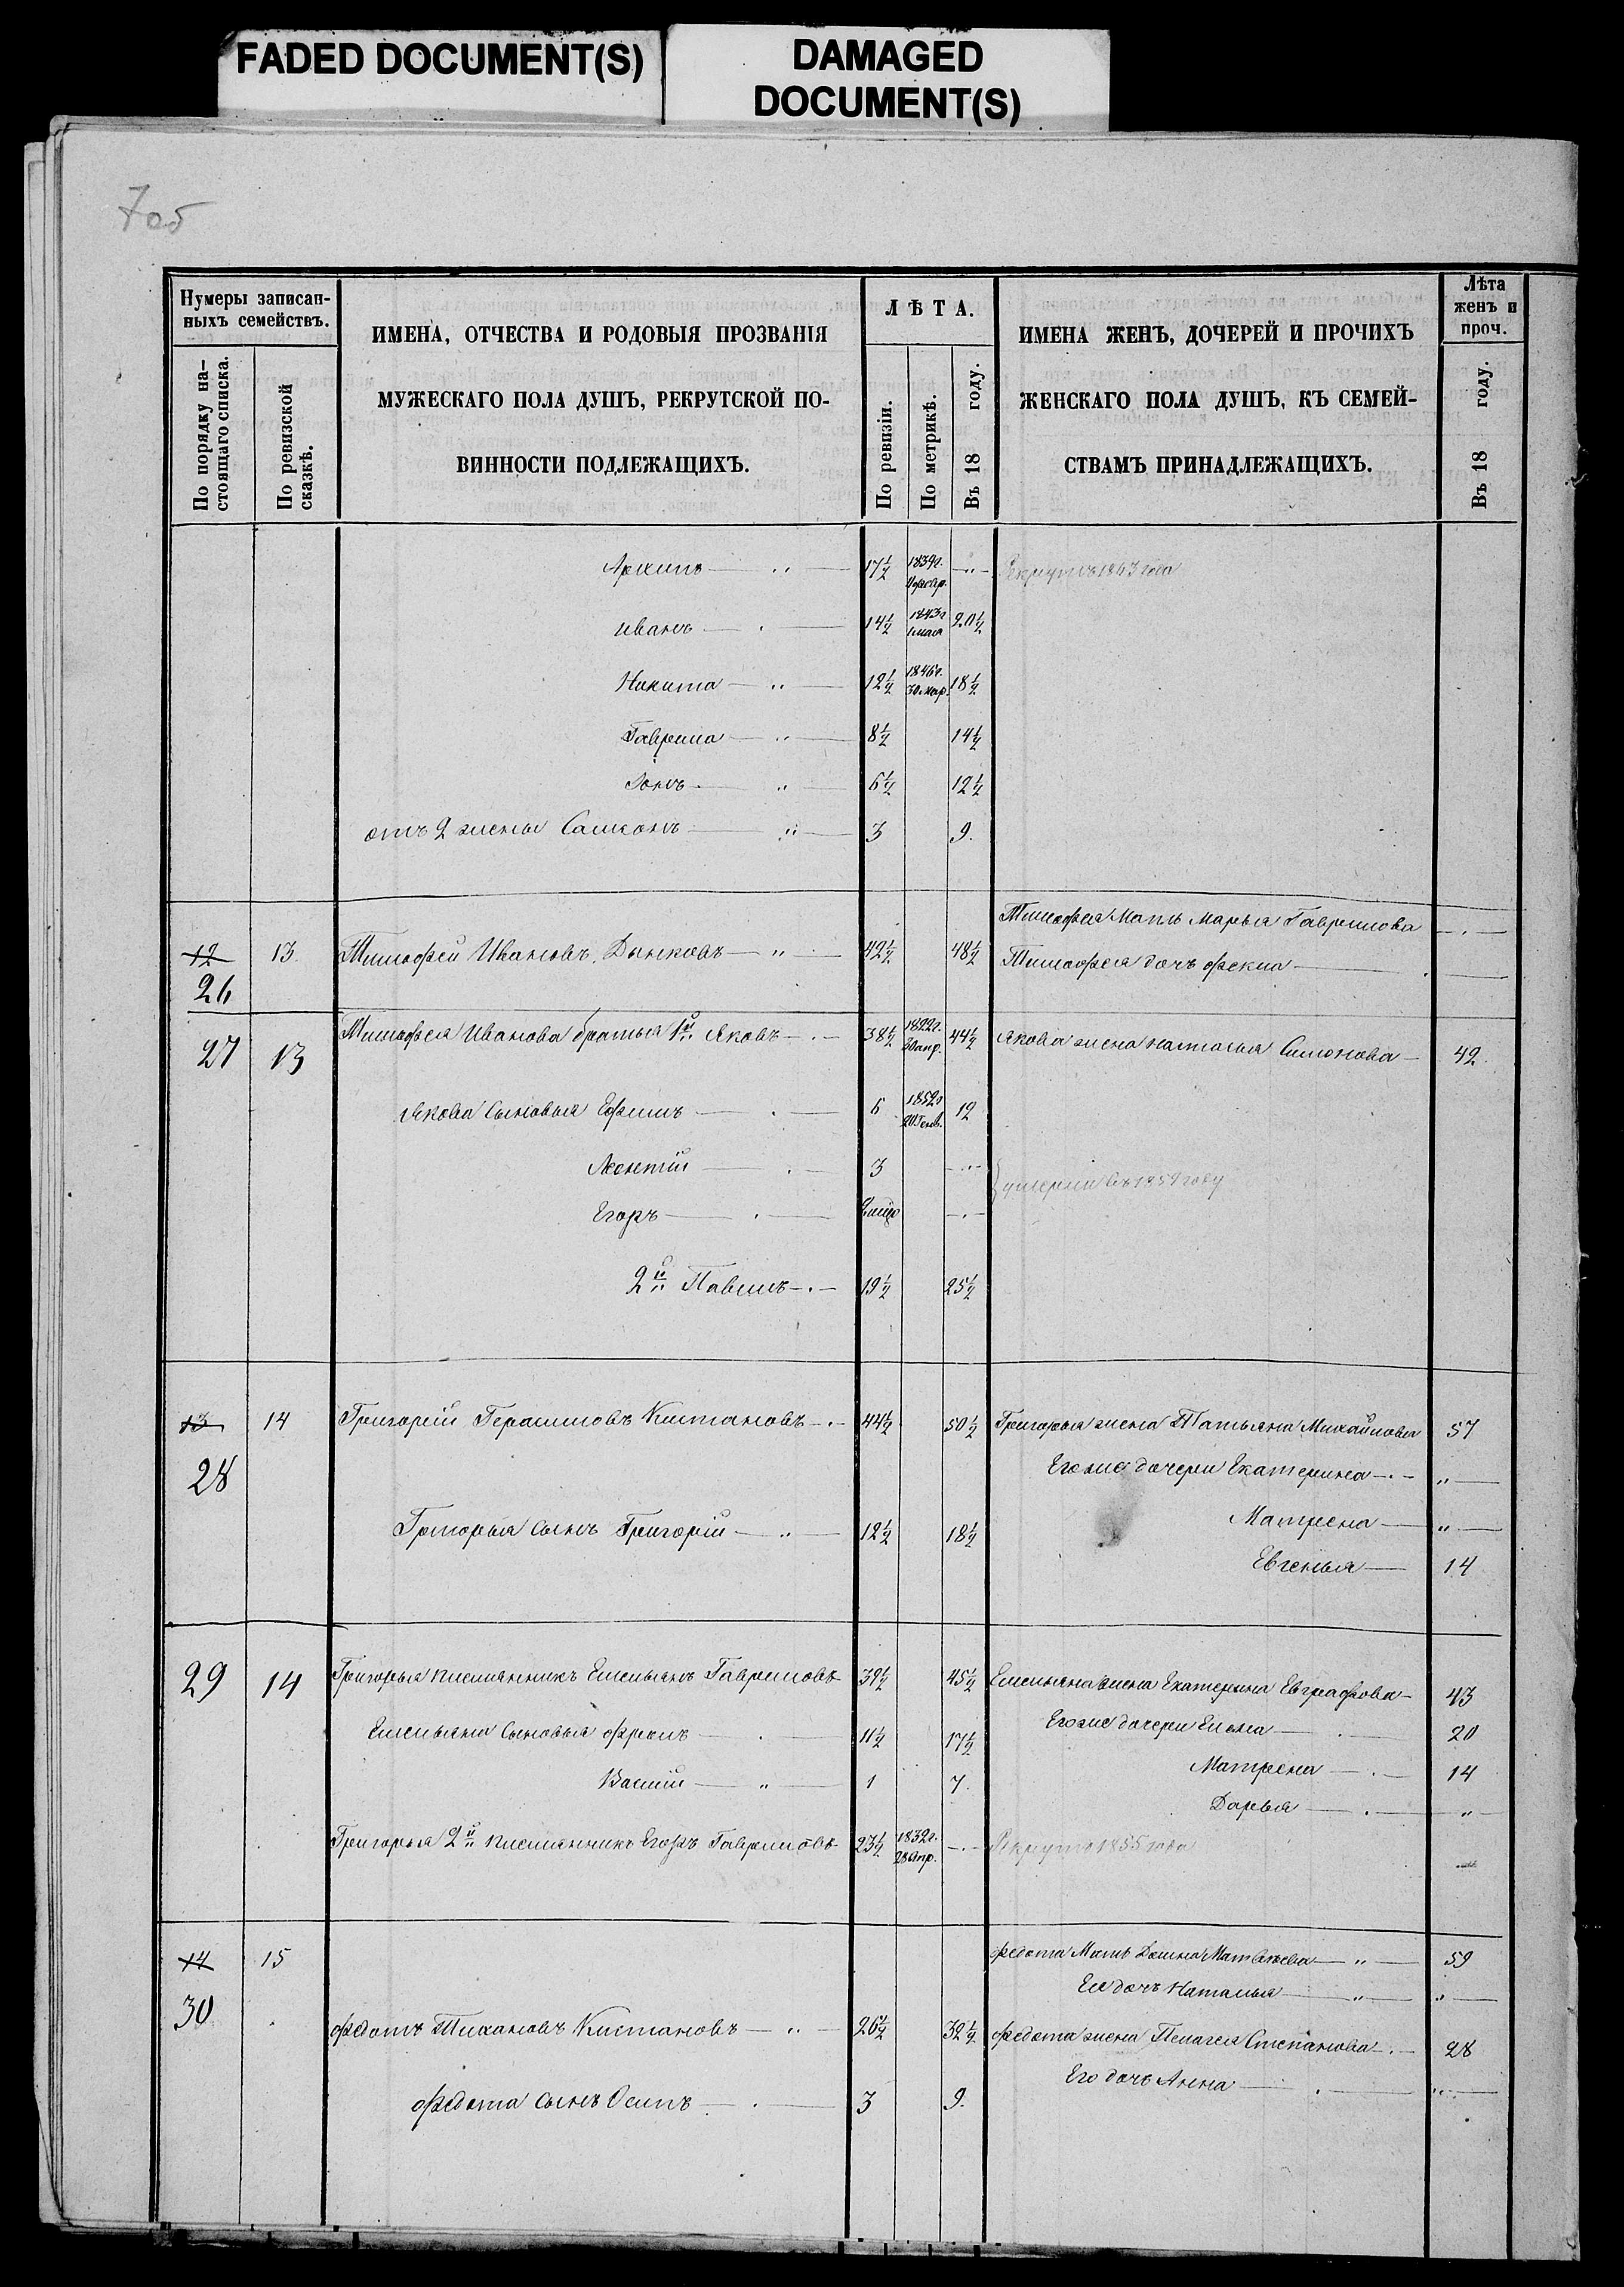 FADED DOCUMENT(S)
DAMAGED
DOCUMENT(S)
7об
Нумеры записан-
ныхъ семействъ.
По порядку на-
стоящаго списка.
По ревизской
сказкѣ.
ИМЕНА, ОТЧЕСТВА И РОДОВЫЯ ПРОЗВАНІЯ
МУЖЕСКАГО ПОЛА ДУШЪ, РЕКРУТСКОЙ ПО-
ВИННОСТИ ПОДЛЕЖАЩИХЪ.
ЛѢТА.
По ревизіи.
По метрикѣ.
Въ 18 году.
ИМЕНА ЖЕНЪ, ДОЧЕРЕЙ И ПРОЧИХЪ
ЖЕНСКАГО ПОЛА ДУШЪ, КЪ СЕМЕЙ-
СТВАМЪ ПРИНАДЛЕЖАЩИХЪ.
Лѣта
женъ и
проч.
Въ 18 году.
Архипъ — " 17½ 1839г. — " — Рекрутъ 1863 года
Иванъ — 14½ 1843г 1 мая 20½
Никита — " — 12½ 1846г. 30 мар. 18½
Гаврила — " — 8½ 14½
Зотъ — " — 6½ 12½
отъ 2 жены Самсонъ — " — 3 9.
Тимофея Мать Марья Гаврилова —
12 13. Тимофей Ивановъ Дынковъ — " 42½ 48½ Тимофея дочь Фекла —
26
27 13 Тимофея Иванова братья 1й Яковъ — 38½ 1822г. 30 апр. 44½ Якова жена Наталья Симонова — 42.
Якова сыновья Ефимъ — 6 1852г 20 Генв. 12
Леонтій — 3 — " —
умерли въ 1859 году
Егоръ —
2й Павелъ — 19½ 25½
13 14 Григорій Герасимовъ Кистановъ — 44½ 50½ Григорья жена Татьяна Михайлова 57
28 Его же дочери Екатерина — " —
Григорья сынъ Григорій — " — 12½ 18½ Матрена — " —
Евгенья — 14
29 14 Григорья племянникъ Емельянъ Гавриловъ 39½ 45½ Емельяна жена Екатерина Евграфова — 43
Емельяна сыновья Фролъ — 11½ 17½ Его же дочери Елена — 20
Василій — " — 1 7. Матрена — 14
Дарья — " —
Григорья 2й племянникъ Егоръ Гавриловъ 23½ 1832г. 28 Апр. — Рекрутъ 1855 года
14 15 Федота Мать Домна Матвѣева — " — 59
30 Ея дочь Наталья — " — " —
Федотъ Тихановъ Кистановъ — " — 26½ 32½ Федота жена Пелагея Степанова — 28
Его дочь Анна —
Федота сынъ Осипъ — 3 9.